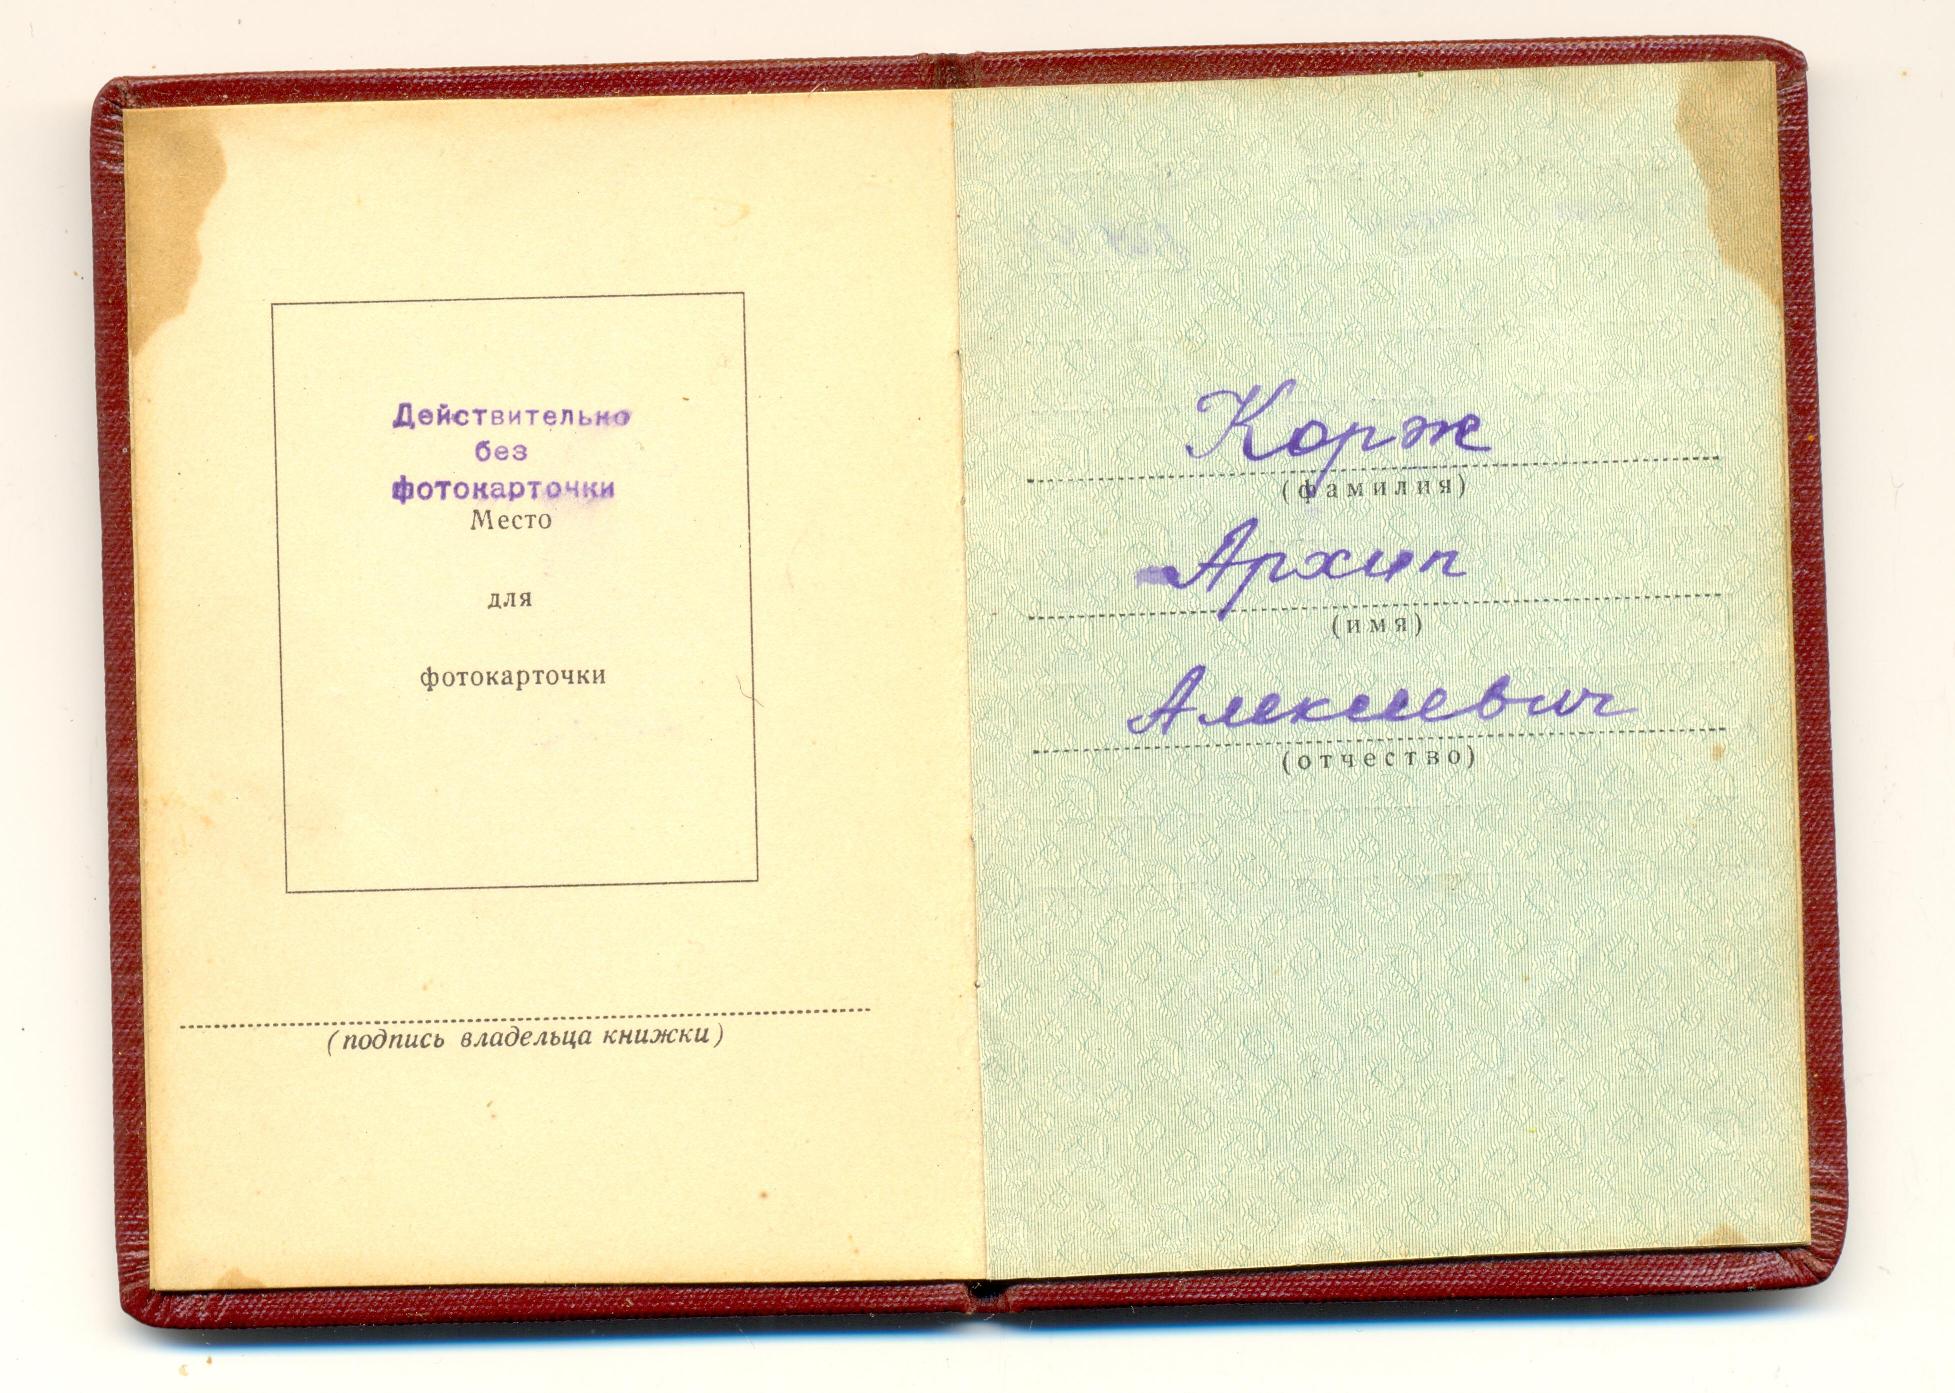 Действительно
без
фотокарточки
Место
для
фотокарточки
(подпись владельца книжки)
Корж
(фамилия)
Архип
(имя)
Алексеевич
(отчество)